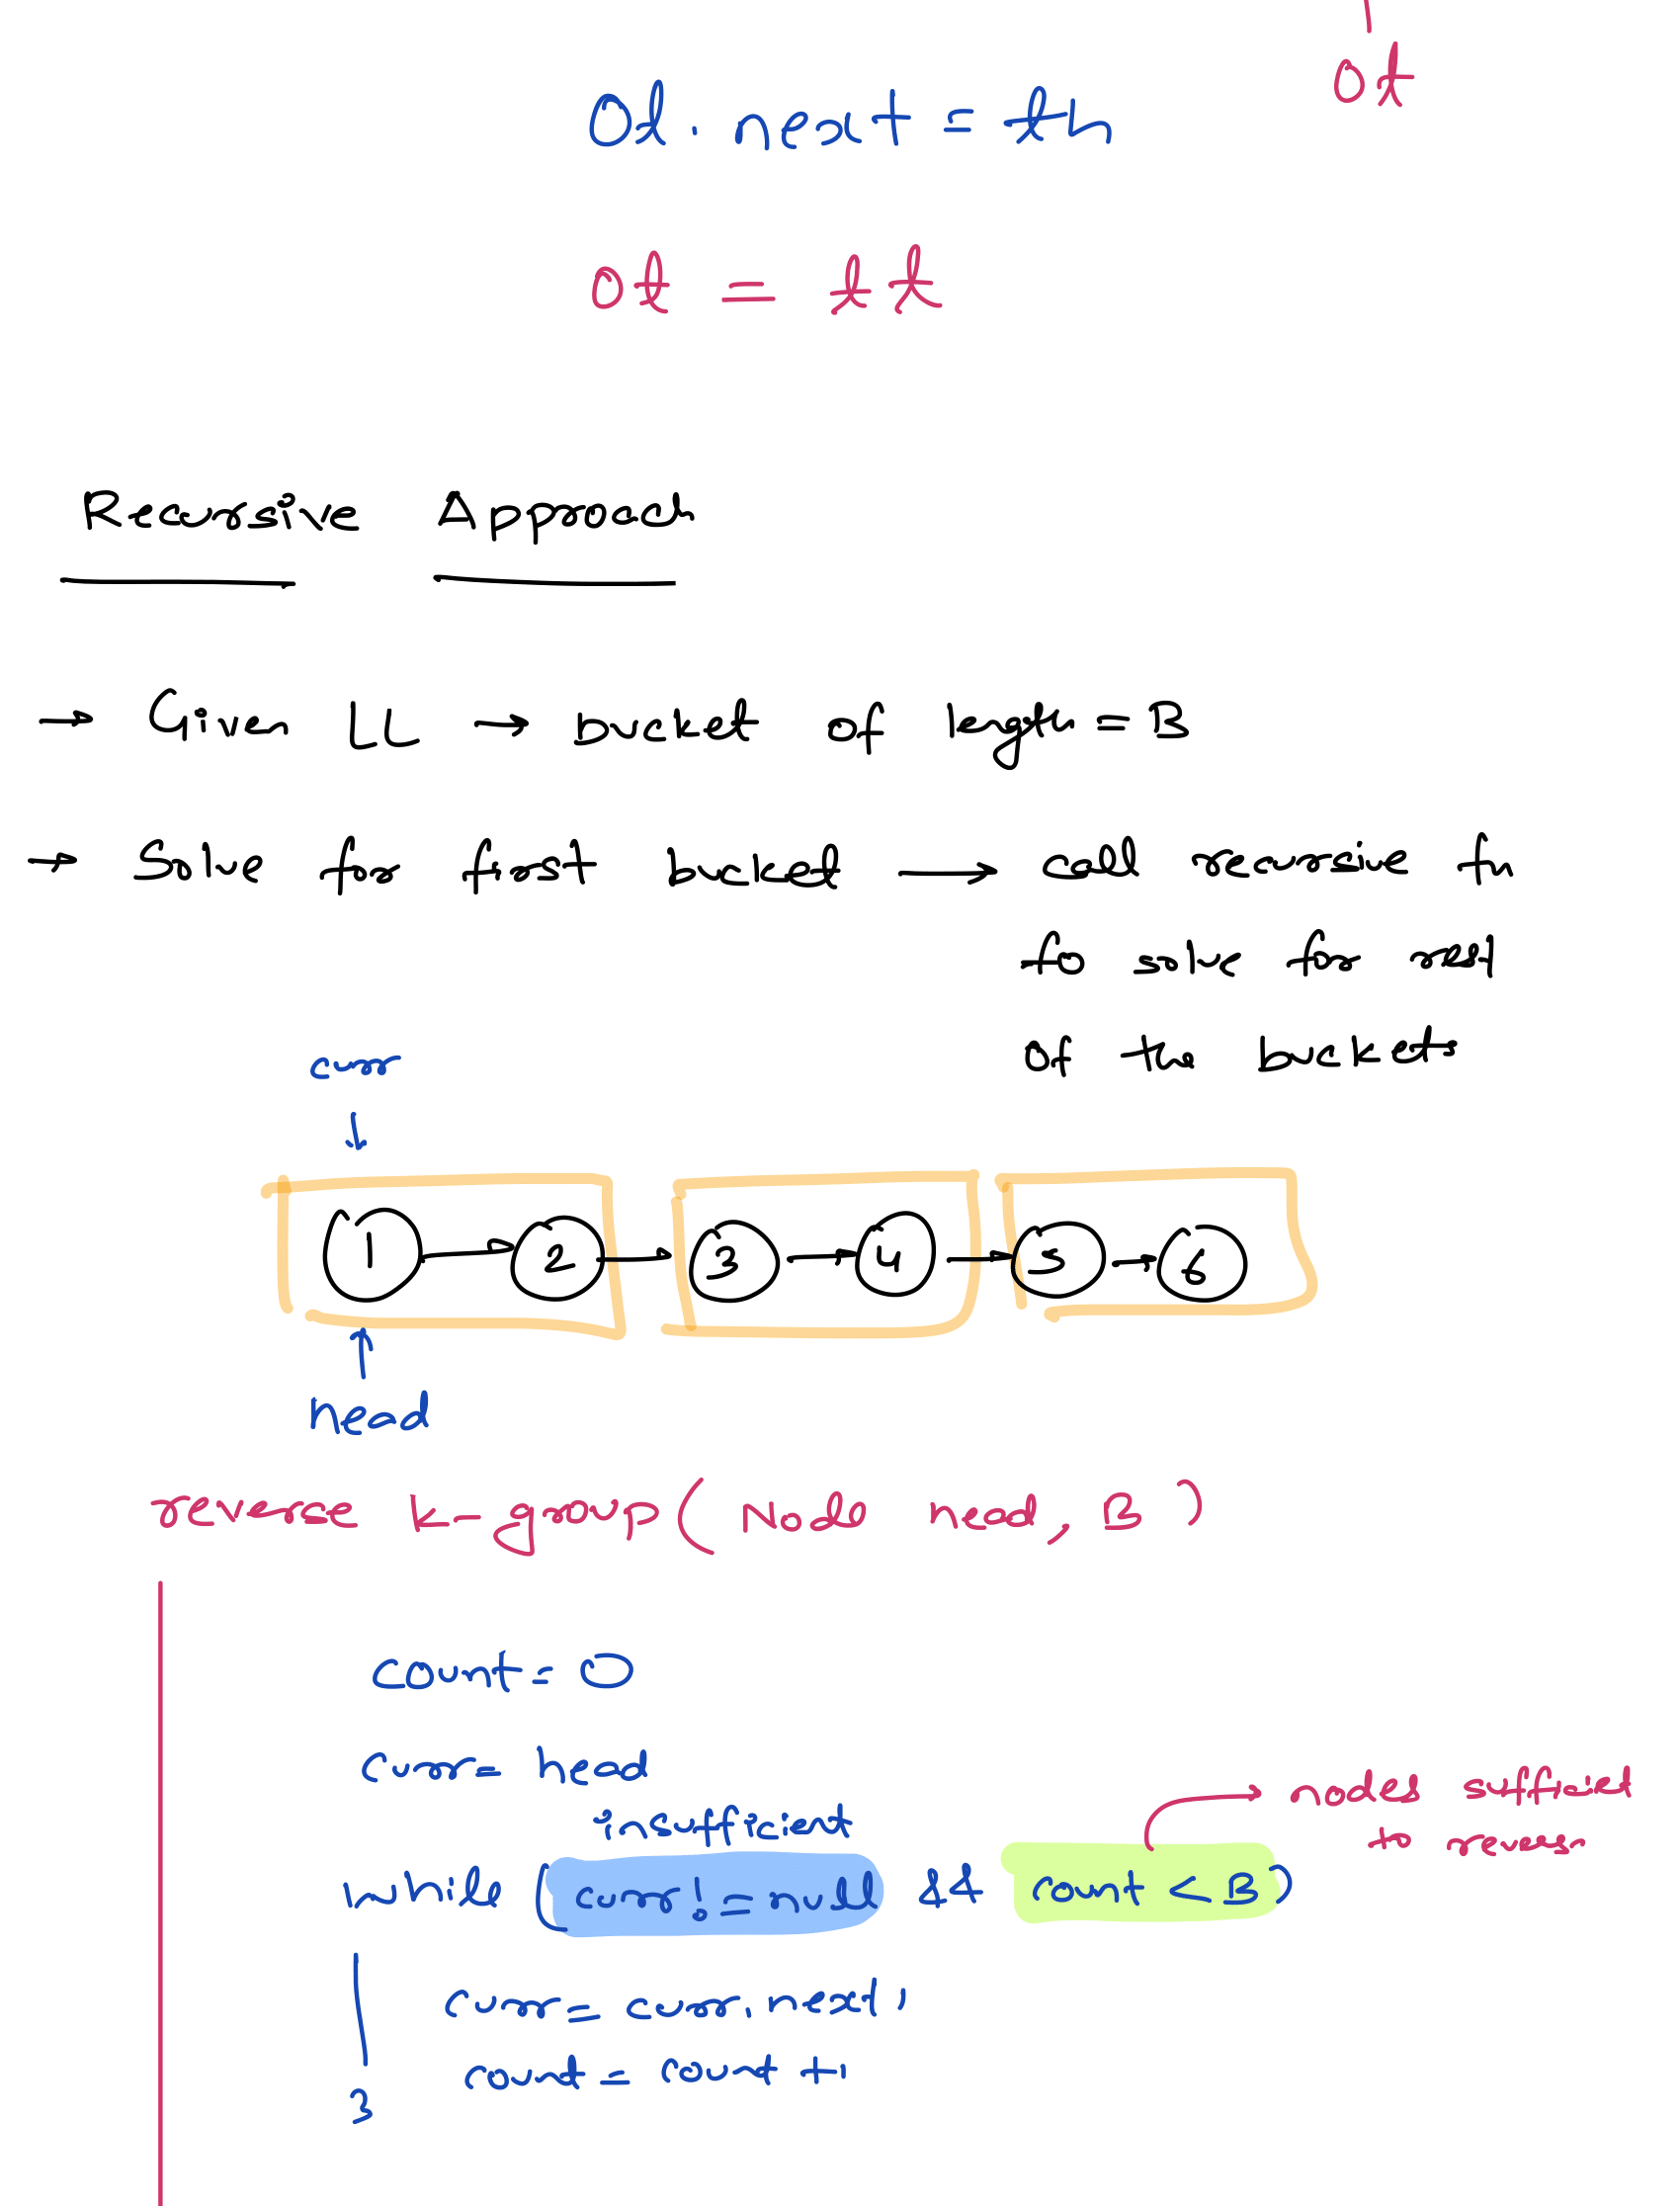 ot
Ot. next = th
ot = tt
Recursive Approach
→ Given LL → bucket of length = B
→ Solve for first bucket → call recursive fn
to solve for rest
of the buckets
curr
↓
1 → 2 → 3 → 4 → 5 → 6
↑
head
reverse k-group( Node head, B )
count = 0
curr = head
nodes sufficient
insufficient
to reverse
while (curr != null && count < B)
curr = curr.next;
count = count + 1
}